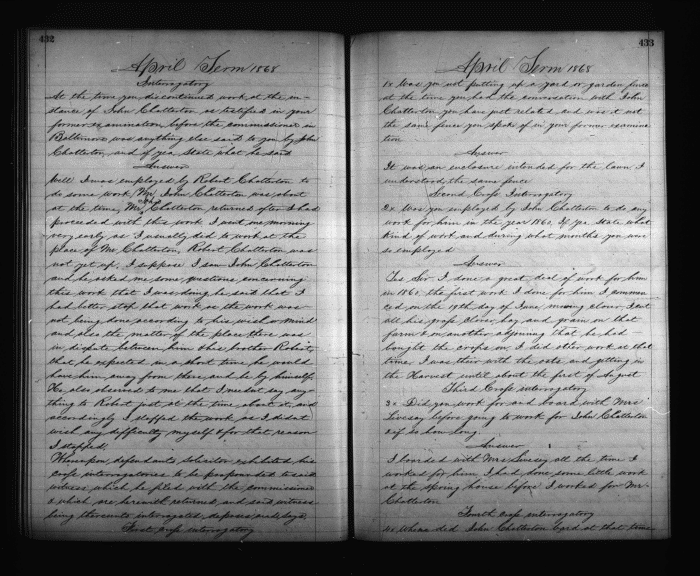 432
April Term 1868
Interrogatory
At the time you discontinued work at the in-
stance of John Chatterton as testified in your
former examination before the commissioner in
Baltimore was anything else said to you by John
Chatterton, and if yea, state what he said
Answer
Well I was employed by Robert Chatterton to
do some work, Mr John Chatterton was absent
at the time, Mr Chatterton returned after I had
proceeded with this work I went one morning
very early as I usually did to work at the
place of Mr Chatterton, Robert Chatterton was
not yet up, I suppose I saw John Chatterton
and he asked me some questions concerning
this work that I was doing he said that I
had better stop that work as the work was
not being done according to his wish or mind
and also the matter of the place there was
in dispute between him & his brother Robert,
that he expected in a short time he would
have him away from there and be by himself
He also observed to me that I need not say any-
thing to Robert just at the time about it and
accordingly I stopped the work as I did not
wish any difficulty myself & for that reason
I stopped.
Whereupon defendants solicitor exhibited his
cross interrogatories to be propounded to said
witness, which he filed with the commissioner
& which are herewith returned, and said witness
being thereunto interrogated, deposes and says,
First Cross interrogatory
433
April Term 1868
1x Was you not putting up a yard or garden fence
at the time you had the conversation with John
Chatterton you have just related and was it not
the same fence you speak of in your former examina-
tion
Answer
It was an enclosure intended for the lawn I
understood the same fence
Second Cross Interrogatory
2x Was you employed by John Chatterton to do any
work for him in the year 1860. If yea state what
kind of work and during what months you was
so employed
Answer
Yes Sir I done a great deal of work for him
in 1860, the first work I done for him I commen-
ced on the 19th day of June, mowing clover I cut
all his grass clover hay and grain on that
farm & on another adjoining that he had
bought the crops on, I did other work at that
time. I was their with the oats and getting in
the Harvest until about the first of August
Third Cross interrogatory
3x Did you work for and board with Mrs
Linsay before going to work for John Chatterton
& if so how long
Answer
I boarded with Mrs Linsay all the time I
worked for him, I had done some little work
at the spring house before I worked for Mr
Chatterton
Fourth Cross interrogatory
4x Where did John Chatterton board at that time